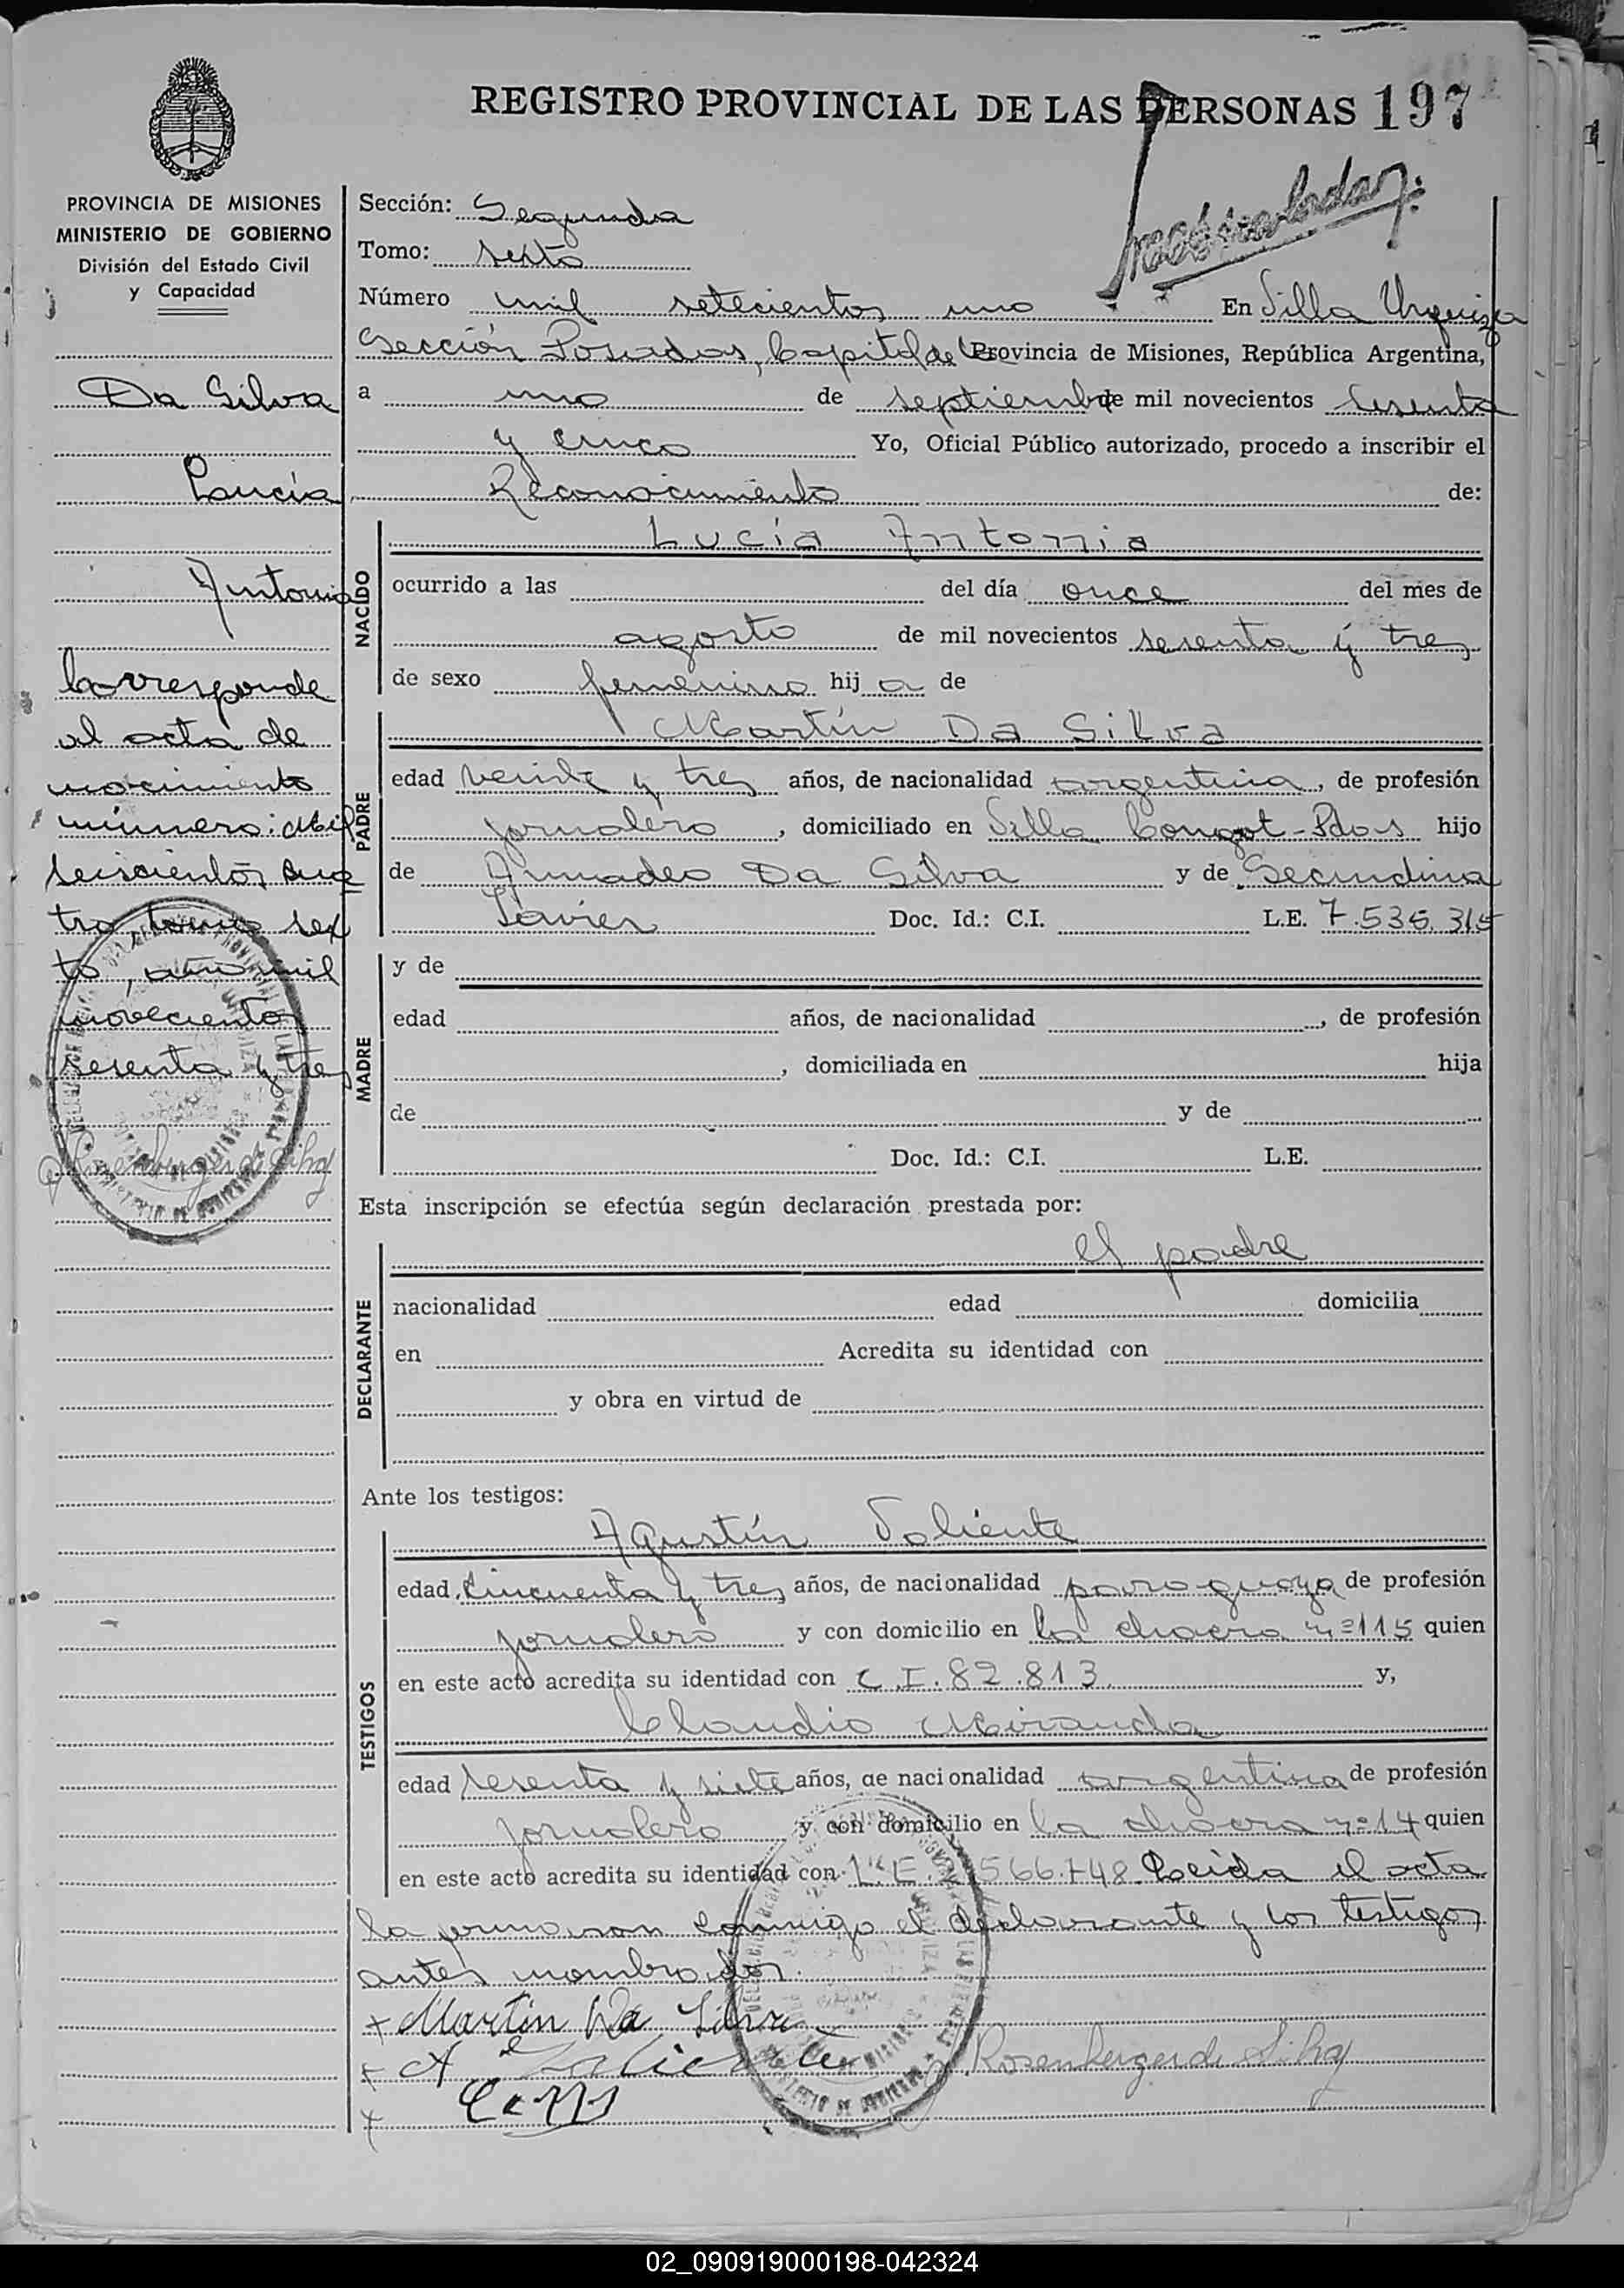 REGISTRO PROVINCIAL DE LAS PERSONAS 197
PROVINCIA DE MISIONES
MINISTERIO DE GOBIERNO
División del Estado Civil
y Capacidad
Da Silva
Lucía
Antonia
Corresponde
al acta de
nacimiento
número: Mil
seiscientos cua
tro, tomo sex
to, año mil
novecientos
sesenta y tres
Sección: Segunda
Tomo: sexto
Número mil setecientos uno En Villa Urquiza
Sección Posadas, Capital de la Provincia de Misiones, República Argentina,
a uno de septiembre de mil novecientos sesenta
y cinco Yo, Oficial Público autorizado, procedo a inscribir el
Reconocimiento de:
NACIDO
Lucía Antonia
ocurrido a las del día once del mes de
agosto de mil novecientos sesenta y tres
de sexo femenino hij a de
PADRE
Martín Da Silva
edad veinte y tres años, de nacionalidad argentina, de profesión
jornalero, domiciliado en Villa Longot - Pdas hijo
de Amadeo Da Silva y de Secundina
Javier Doc. Id.: C.I. L.E. 7.535.315
MADRE
y de
edad años, de nacionalidad , de profesión
, domiciliada en hija
de y de
Doc. Id.: C.I. L.E.
Esta inscripción se efectúa según declaración prestada por:
DECLARANTE
el padre
nacionalidad edad domicilia
en Acredita su identidad con
y obra en virtud de
Ante los testigos:
TESTIGOS
Agustín Valiente
edad cincuenta y tres años, de nacionalidad paraguaya de profesión
jornalero y con domicilio en la chacra nº 115 quien
en este acto acredita su identidad con C.I. 82.813 y,
Claudio Miranda
edad sesenta y siete años, de nacionalidad argentina de profesión
jornalero y con domicilio en la chacra nº 14 quien
en este acto acredita su identidad con L.E. 566.748 Leida el acta
la firmaron conmigo el declarante y los testigos
antes nombrados.
+ Martin Da Silva
+ A Valiente
Rosenberger de Silva
+
02_090919000198-042324